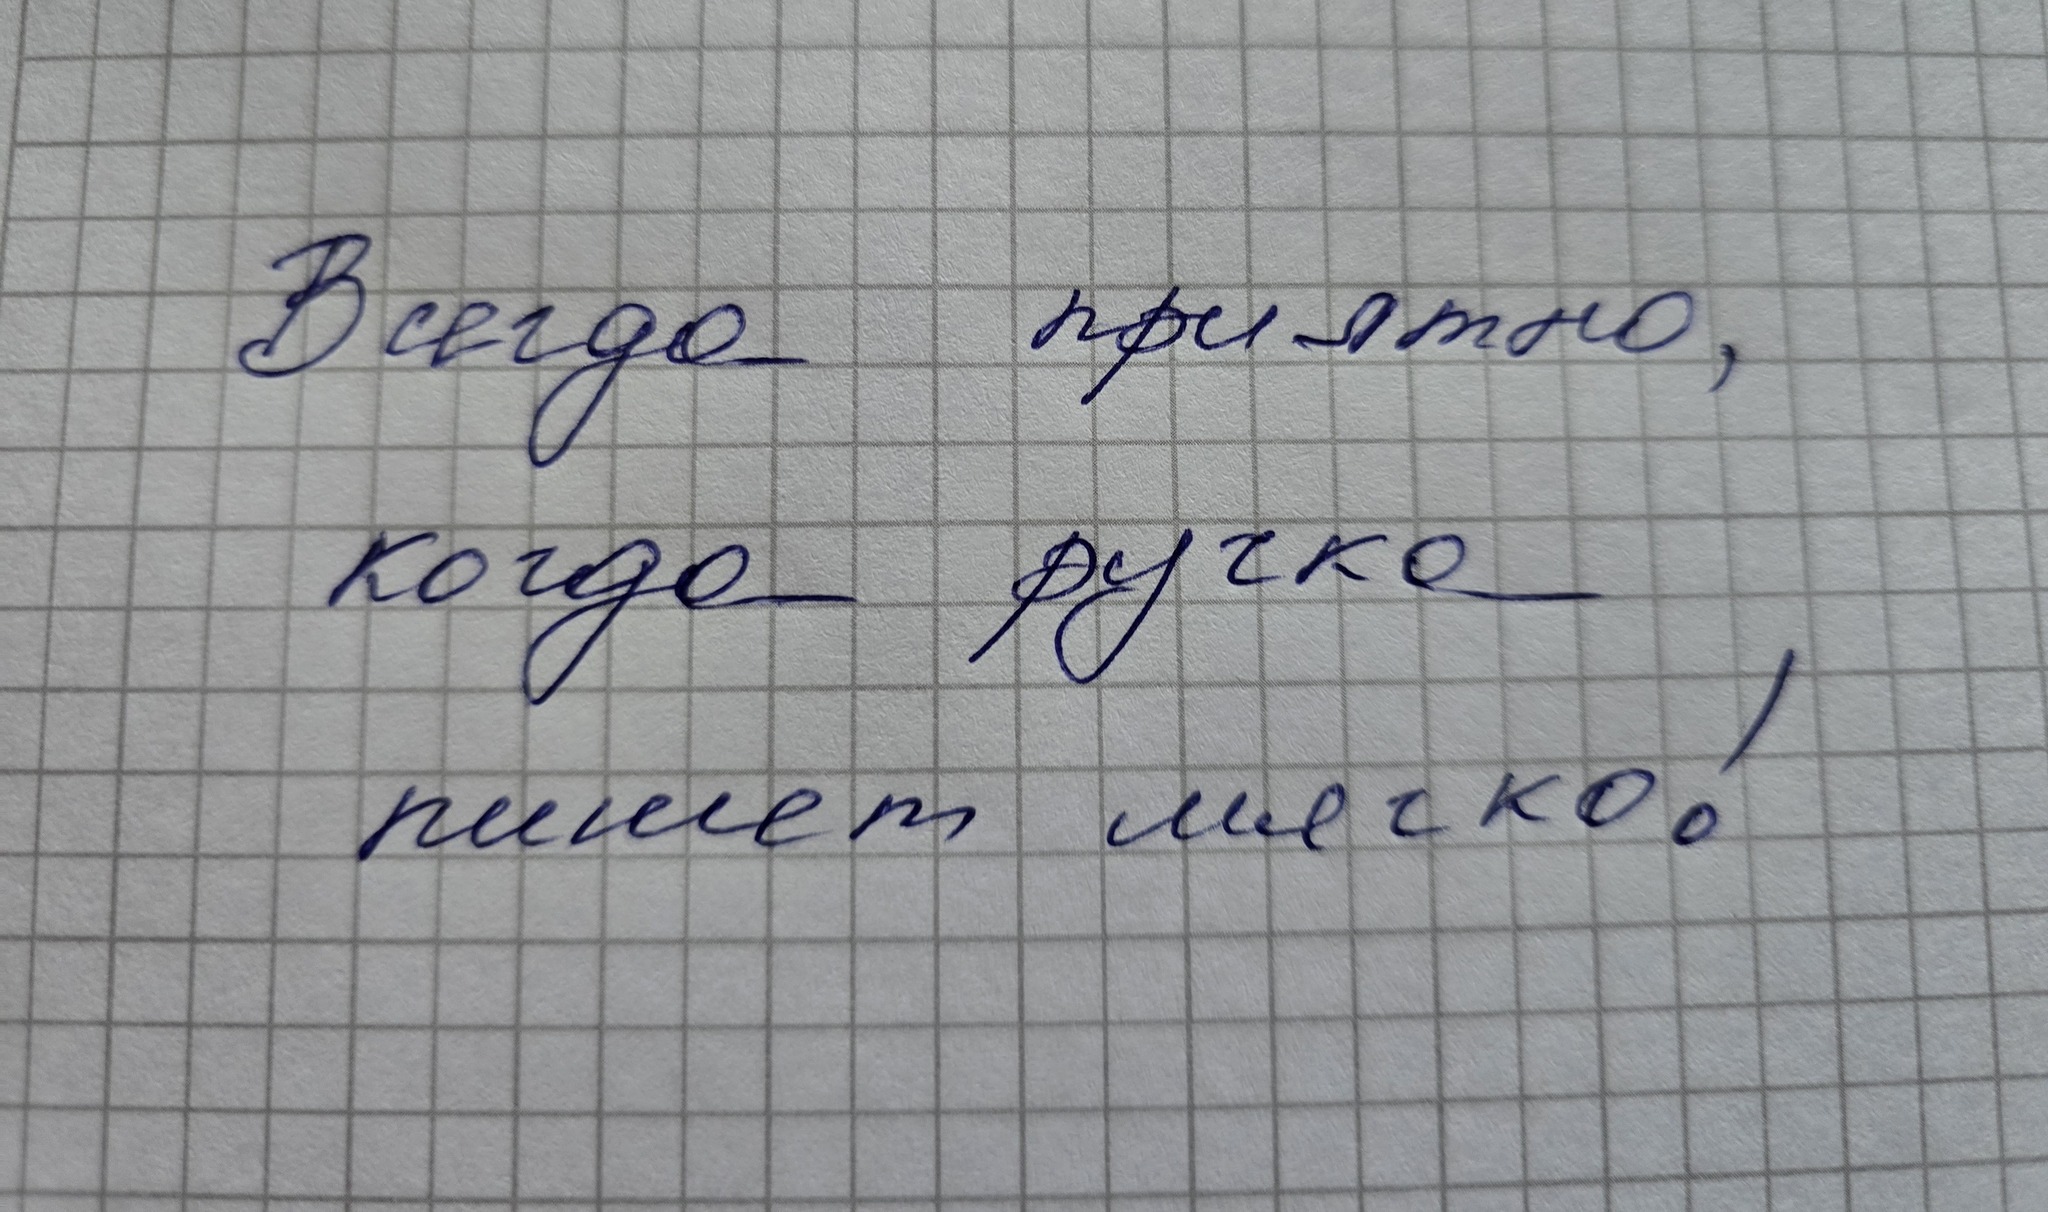 Всегда приятно,
когда ручка
пишет мягко!